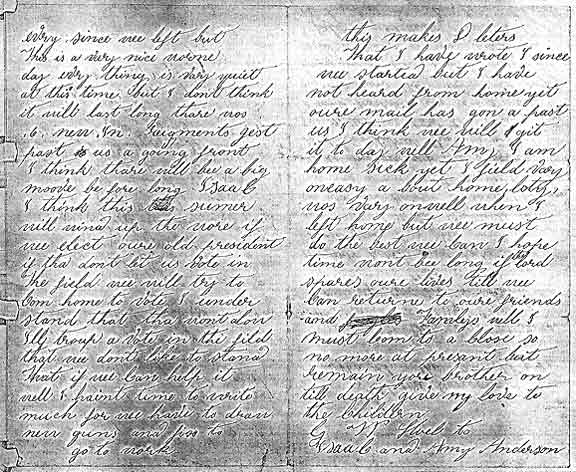 evry since wee left but
This is a very nice worne
day evry thing is vary quiet
at this time but I dont think
it will last long thare wos
.6. new In. Regments gest
past us a going front
I think thare will bee a big
moove be fore long Isaac
I think this sumer
will wind up the wore if
wee elect oure old president
if tha dont let us vote in
the field wee will try to
com home to vote I under
stand that tha wont alow
Illy troup a vote in the fild
that wee dont like to stand
That if wee can help it
well I haint time to write
much for wee have to draw
new guns and too
go to work
this makes 2 leters
That I have wrote I since
wee started but I have
not heard from home yet
oure mail has gon a past
us I think wee will git
it to day well Amy I am
home sick yet I field vary
oneasy a bout home
wos vary onwell when I
left home but wee must
do the best wee can I hope
time wont bee long if lord
spares oure lives till wee
can returne to oure friends
and Familys well I
must com to a close so
no more at presant but
remain your brother on
till death give my love to
the children
G W to
Isaac and Amy Anderson